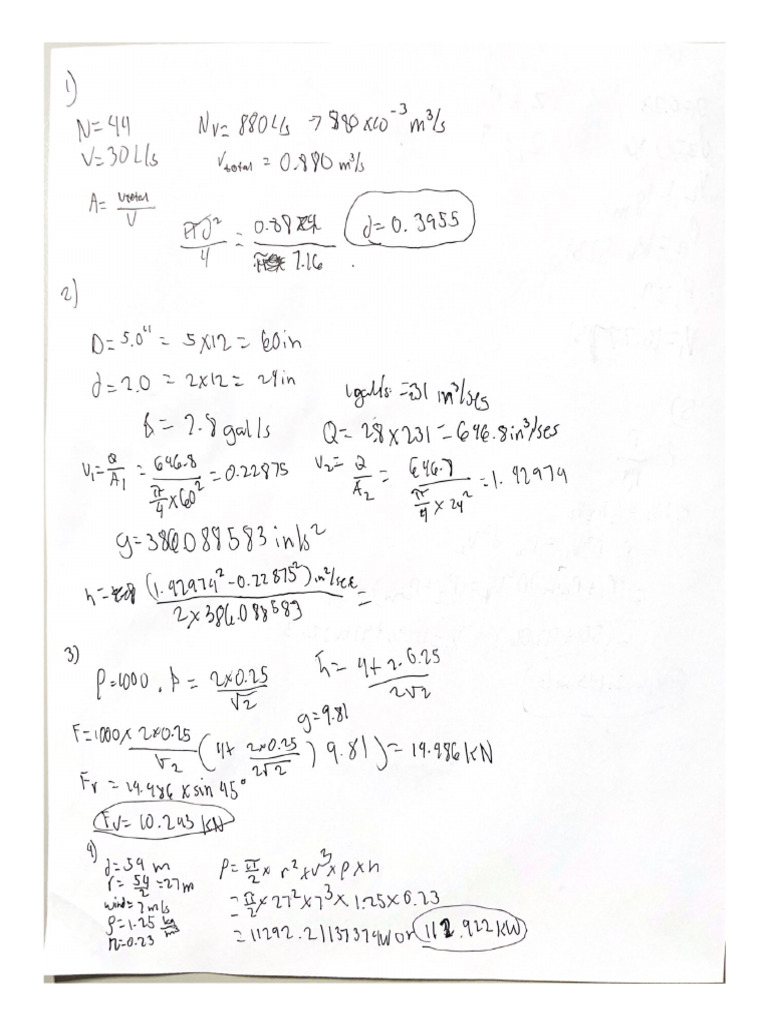 1)
N=44 Nv= 880 L/s → 880 x10⁻³ m³/s
V=30 L/s Vtotal = 0.880 m³/s
A= Vtotal / V
πd² / 4 = 0.88 x4 / 7.16 d= 0.3955
2)
D= 5.0" = 5x12 = 60in
d= 2.0 = 2x12= 24in
1gal/s = 231 in³/ses
Q = 2.8 gal/s Q= 2.8 x 231 = 646.8 in³/ses
V₁= Q/A₁ = 646.8 / (π/4 x 60²) = 0.22875 V₂= Q/A₂ = 646.8 / (π/4 x 24²) = 1.42974
g= 386.088583 in/s²
h= (1.42974² - 0.22875²) in²/sec / 2x386.088583 =
3)
ρ=1000 . A = 2x0.25 / √2 h̄ = 4+ 2.0.25 / 2√2
g=9.81
F=1000x 2x0.25 / √2 (4+ 2x0.25 / 2√2) 9.81) = 14.486 KN
Fr = 14.486 x sin 45°
Fv= 10.243 KN
4)
d= 54 m P = π/2 x r² x v³ x ρ x n
r= 54/2 = 27m
wind= 7 m/s = π/2 x 27² x 7³ x 1.25 x 0.23
ρ=1.25 kg/m
n=0.23 = 11292.21137374W or 112.922 KW